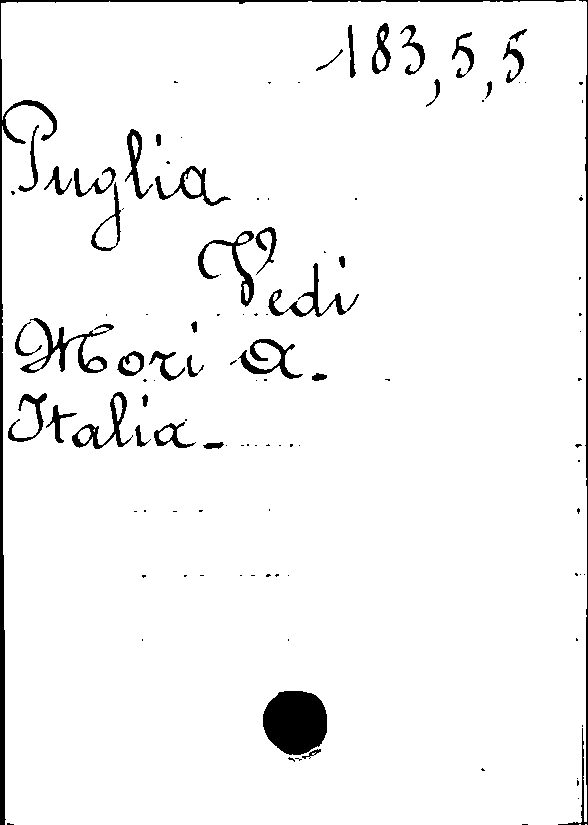 183,5,5
Puglia
Vedi
Mori A.
Italia.